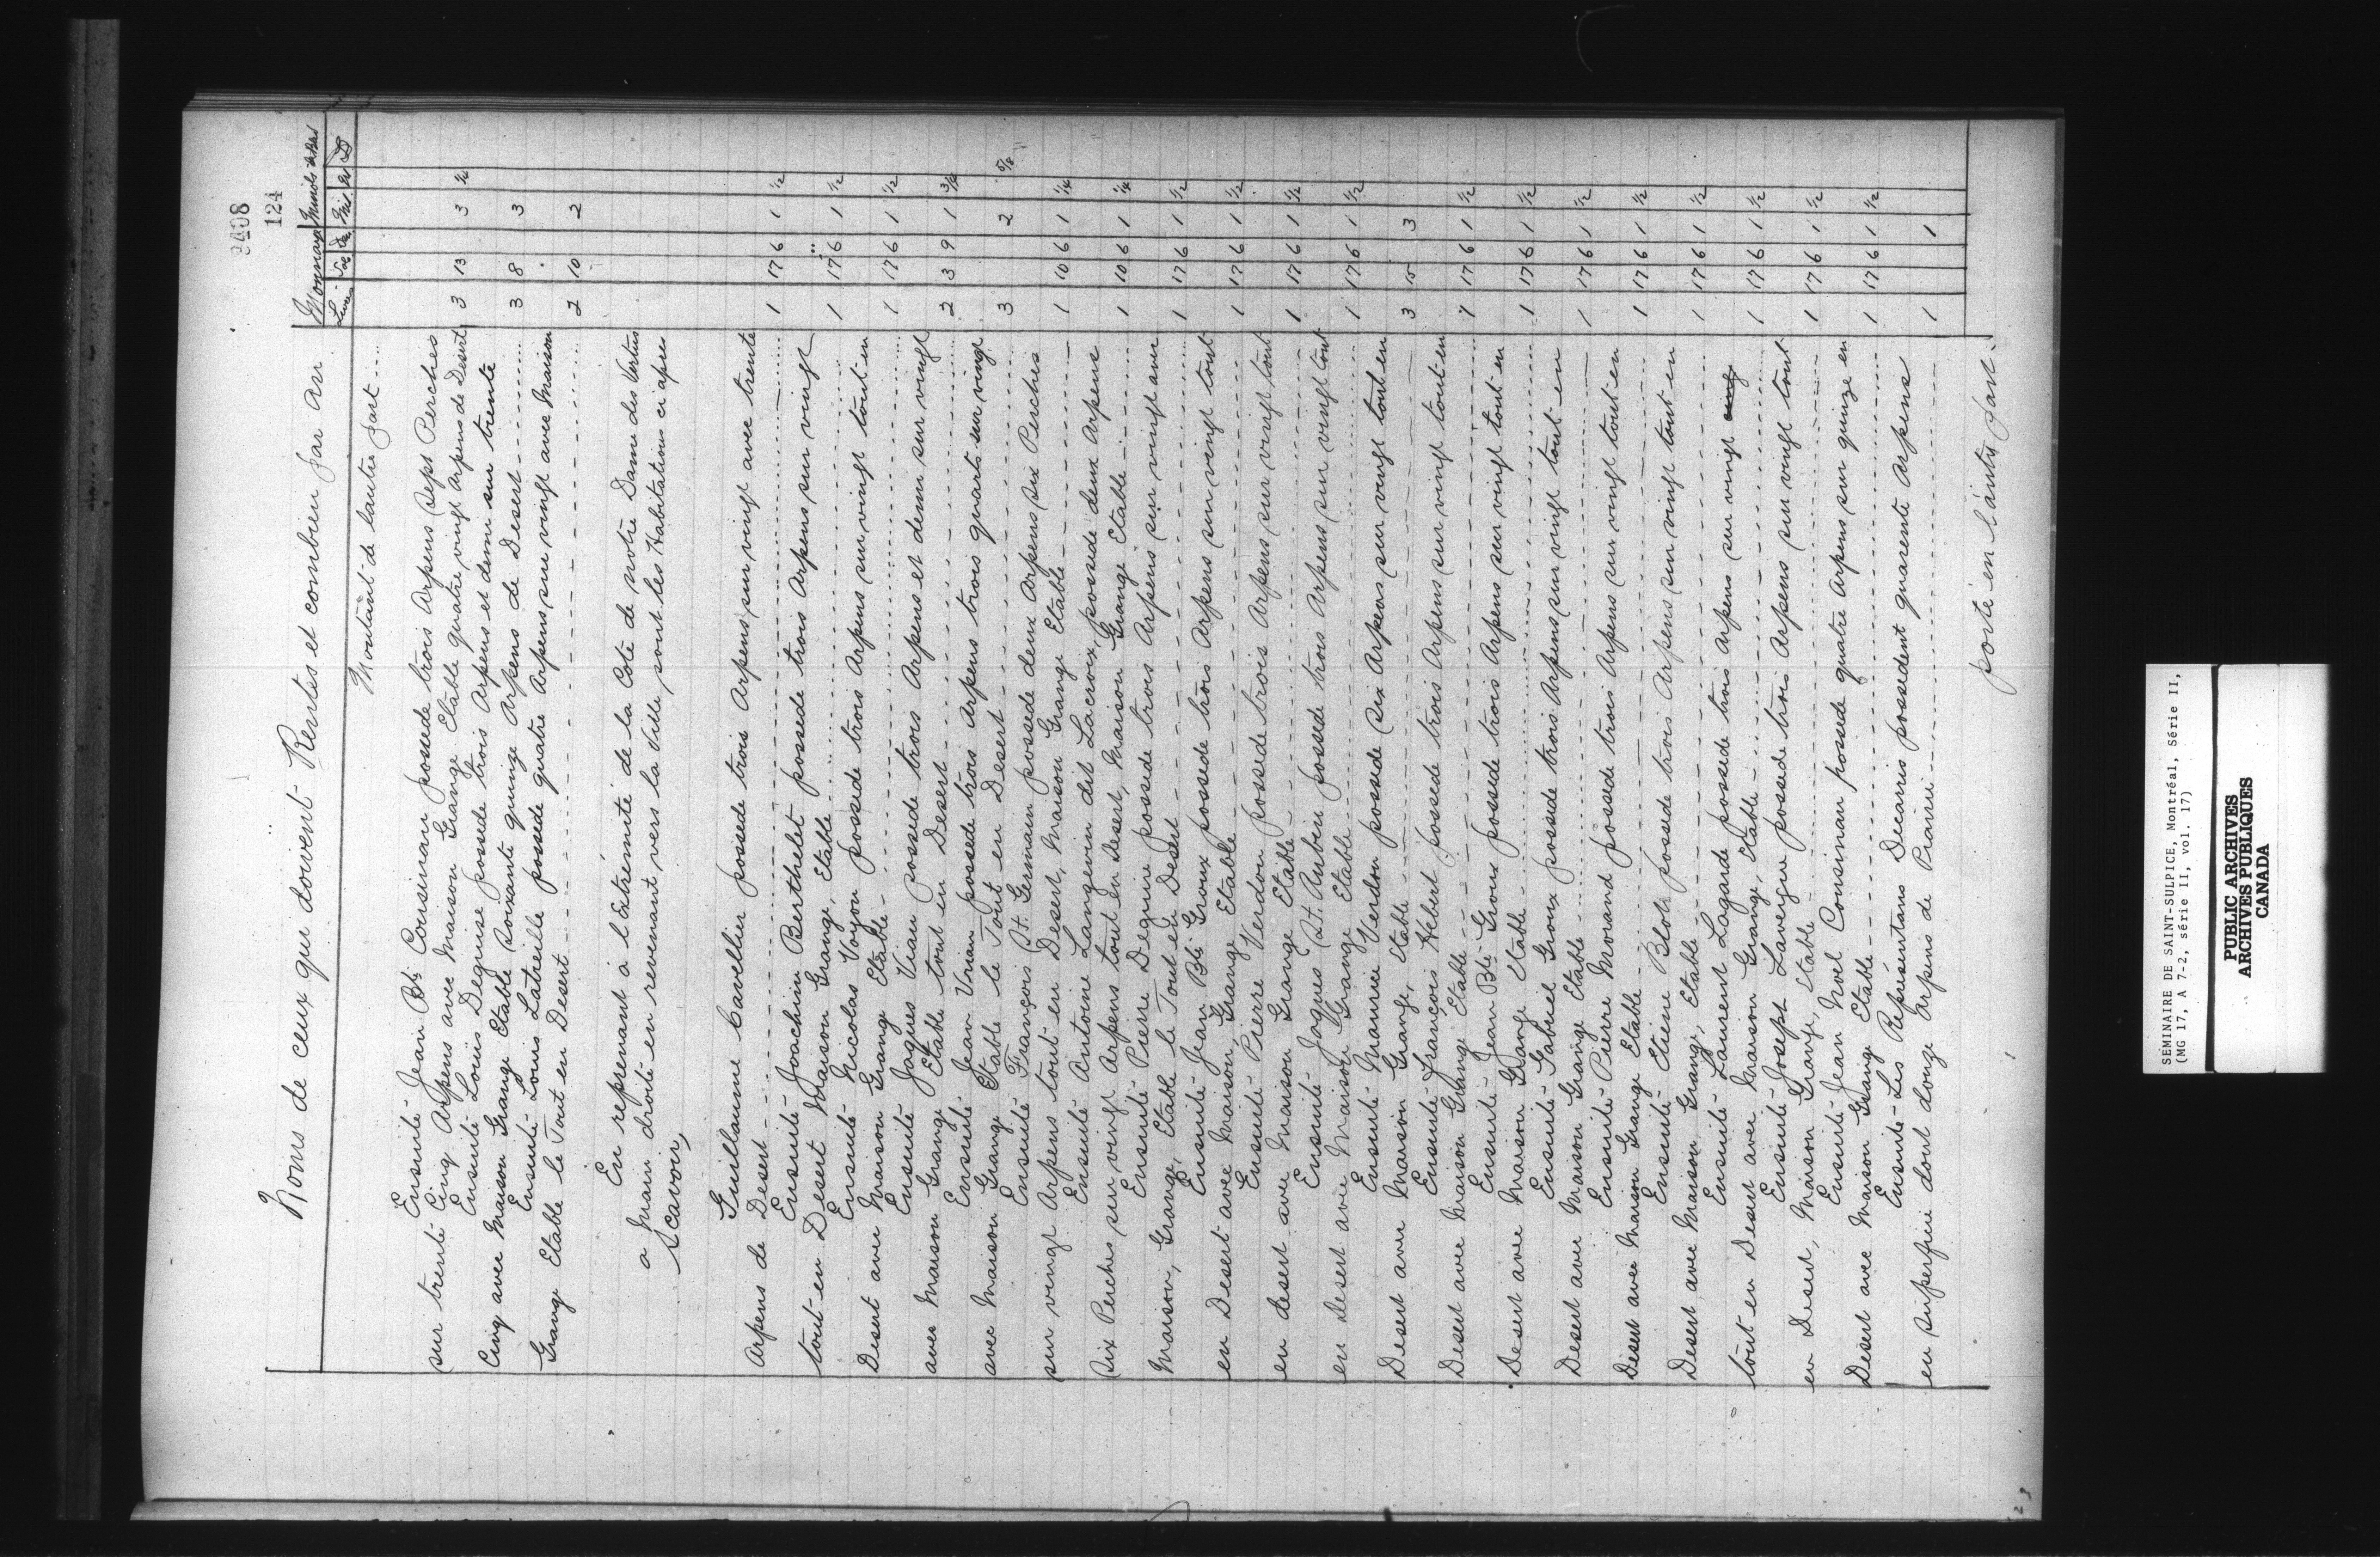 9408
124
Noms de ceux qui doivent Rentes et combien par an
Monnaye Minots de Bled
Livres Sol De. Min.
Montant de lautre part ....
Ensuite Jean Bte Cousineau possede trois Arpens Sept Perches
sur trente Cinq Arpens avec Maison Grange Etable quatre vingt Arpens de Desert 3 13 3
Ensuite Louis Deguise possede trois Arpens et demi sur trente
Cinq avec Maison Grange Etable Soixante quinze Arpens de Desert 3 8 3
Ensuite Louis Latreille possede quatre Arpens sur vingt avec Maison
Grange Etable le Tout en Desert 2 10 2
En reprenant à l'Extrémité de la Cote de notre Dame des Vertus
a main droite en revenant vers la Ville, sont les Habitations ci apres
Scavoir,
Guillaume Cavellier possede trois Arpens sur vingt avec trente
Arpens de Desert 1 17 6 1 1/2
Ensuite Joachim Berthelet possede trois Arpens sur vingt
tout en Desert Maison Grange, Etable 1 17 6 1 1/2
Ensuite Nicolas Voyon possede trois Arpens sur vingt tout en
Desert avec Maison Grange Etable 1 17 6 1 1/2
Ensuite Jaques Viau possede trois Arpens et demi sur vingt
avec Maison Grange Etable tout en Desert 2 3 9 1 3/4
Ensuite Jean possede trois Arpens trois quarts sur vingt
avec Maison Grange Etable le Tout en Desert 3 2 5/8
Ensuite François St. Germain possede deux Arpens six Perches
sur vingt Arpens tout en Desert, Maison Grange Etable 1 10 6 1 1/4
Ensuite Antoine Langevin dit Lacroix, possede deux Arpens
Six Perches sur vingt Arpens tout en Desert, Maison Grange Etable 1 10 6 1 1/4
Ensuite Pierre Deguire possede trois Arpens sur vingt avec
Maison, Grange, Etable le Tout en Desert 1 17 6 1 1/2
Ensuite Jean Bte Groux possede trois Arpens sur vingt tout
en Desert avec Maison, Grange Etable 1 17 6 1 1/2
Ensuite Pierre Verdon possede trois Arpens sur vingt tout
en desert avec Maison Grange Etable 1 17 6 1 1/2
Ensuite Jaques St. Aubin possede trois Arpens sur vingt tout
en Desert avec Maison Grange Etable 1 17 6 1 1/2
Ensuite Maurice Verdon possede Six Arpens sur vingt tout en
Desert avec Maison Grange, Etable 3 15 3
Ensuite François Hébert possede trois Arpens sur vingt tout en
Desert avec Maison Grange Etable 1 17 6 1 1/2
Ensuite Jean Bte Groux possede trois Arpens sur vingt tout en
Desert avec Maison Grange Etable 1 17 6 1 1/2
Ensuite Gabriel Groux possede trois Arpens sur vingt tout en
Desert avec Maison Grange Etable 1 17 6 1 1/2
Ensuite Pierre Morand possede trois Arpens sur vingt tout en
Desert avec Maison Grange Etable 1 17 6 1 1/2
Ensuite Etiene possede trois Arpens sur vingt tout en
Desert avec Maison Grange, Etable 1 17 6 1 1/2
Ensuite Laurent Lagarde possede trois Arpens sur vingt
tout en Desert avec Maison Grange, Etable 1 17 6 1 1/2
Ensuite Joseph Lavergne possede trois Arpens sur vingt tout
en Desert, Maison Grange, Etable 1 17 6 1 1/2
Ensuite Jean Noel Cousineau possede quatre Arpens sur quinze en
Desert avec Maison Grange Etable 1 17 6 1 1/2
Ensuite Les Représentans Decarris possedent quarente Arpens
en Superficie dont douze Arpens de Prairie 1 1
porté en l'autre part.
SEMINAIRE DE SAINT-SULPICE, Montréal, Série II,
(MG 17, A 7-2, série II, vol. 17)
PUBLIC ARCHIVES
ARCHIVES PUBLIQUES
CANADA